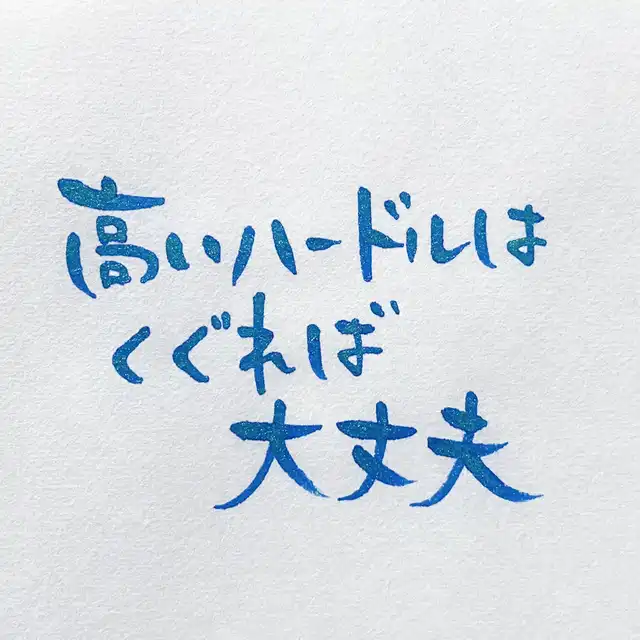 高いハードルは
くぐれば
大丈夫